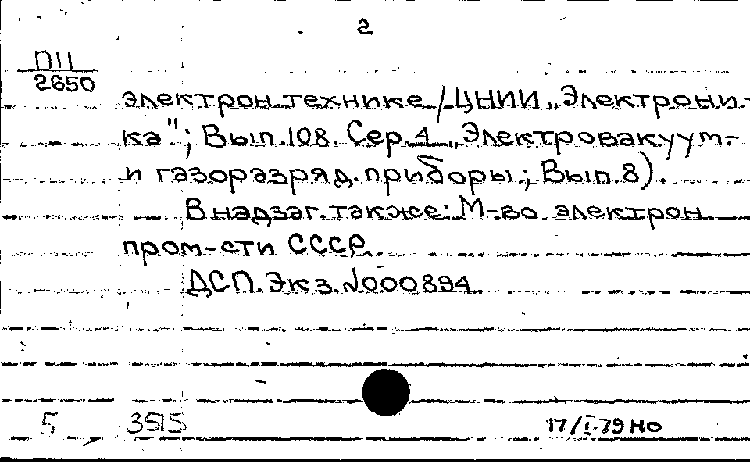 2
П11
2650
электрон. технике / ЦНИИ „Электрони-
ка"; Вып. 108. Сер. 4 „Электровакуум-
и газоразряд. приборы; Вып. 8).
В надзаг. также: М-во электрон
пром-сти СССР.
ДСП. Экз. №000894
5 3515 17/I-79 НО